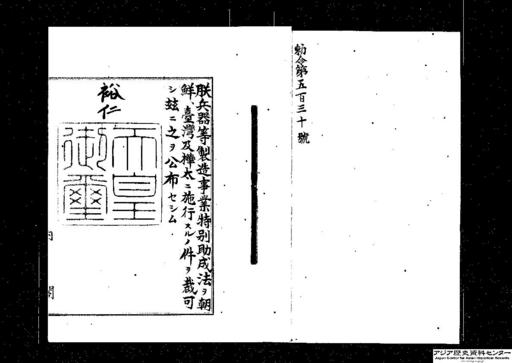 勅令第五百三十號
朕兵器等製造事業特別助成法ヲ朝
鮮、臺灣及樺太ニ施行スルノ件ヲ裁可
シ玆ニ之ヲ公布セシム
裕仁
天皇
御璽
内閣
アジア歴史資料センター
Japan Center for Asian Historical Records